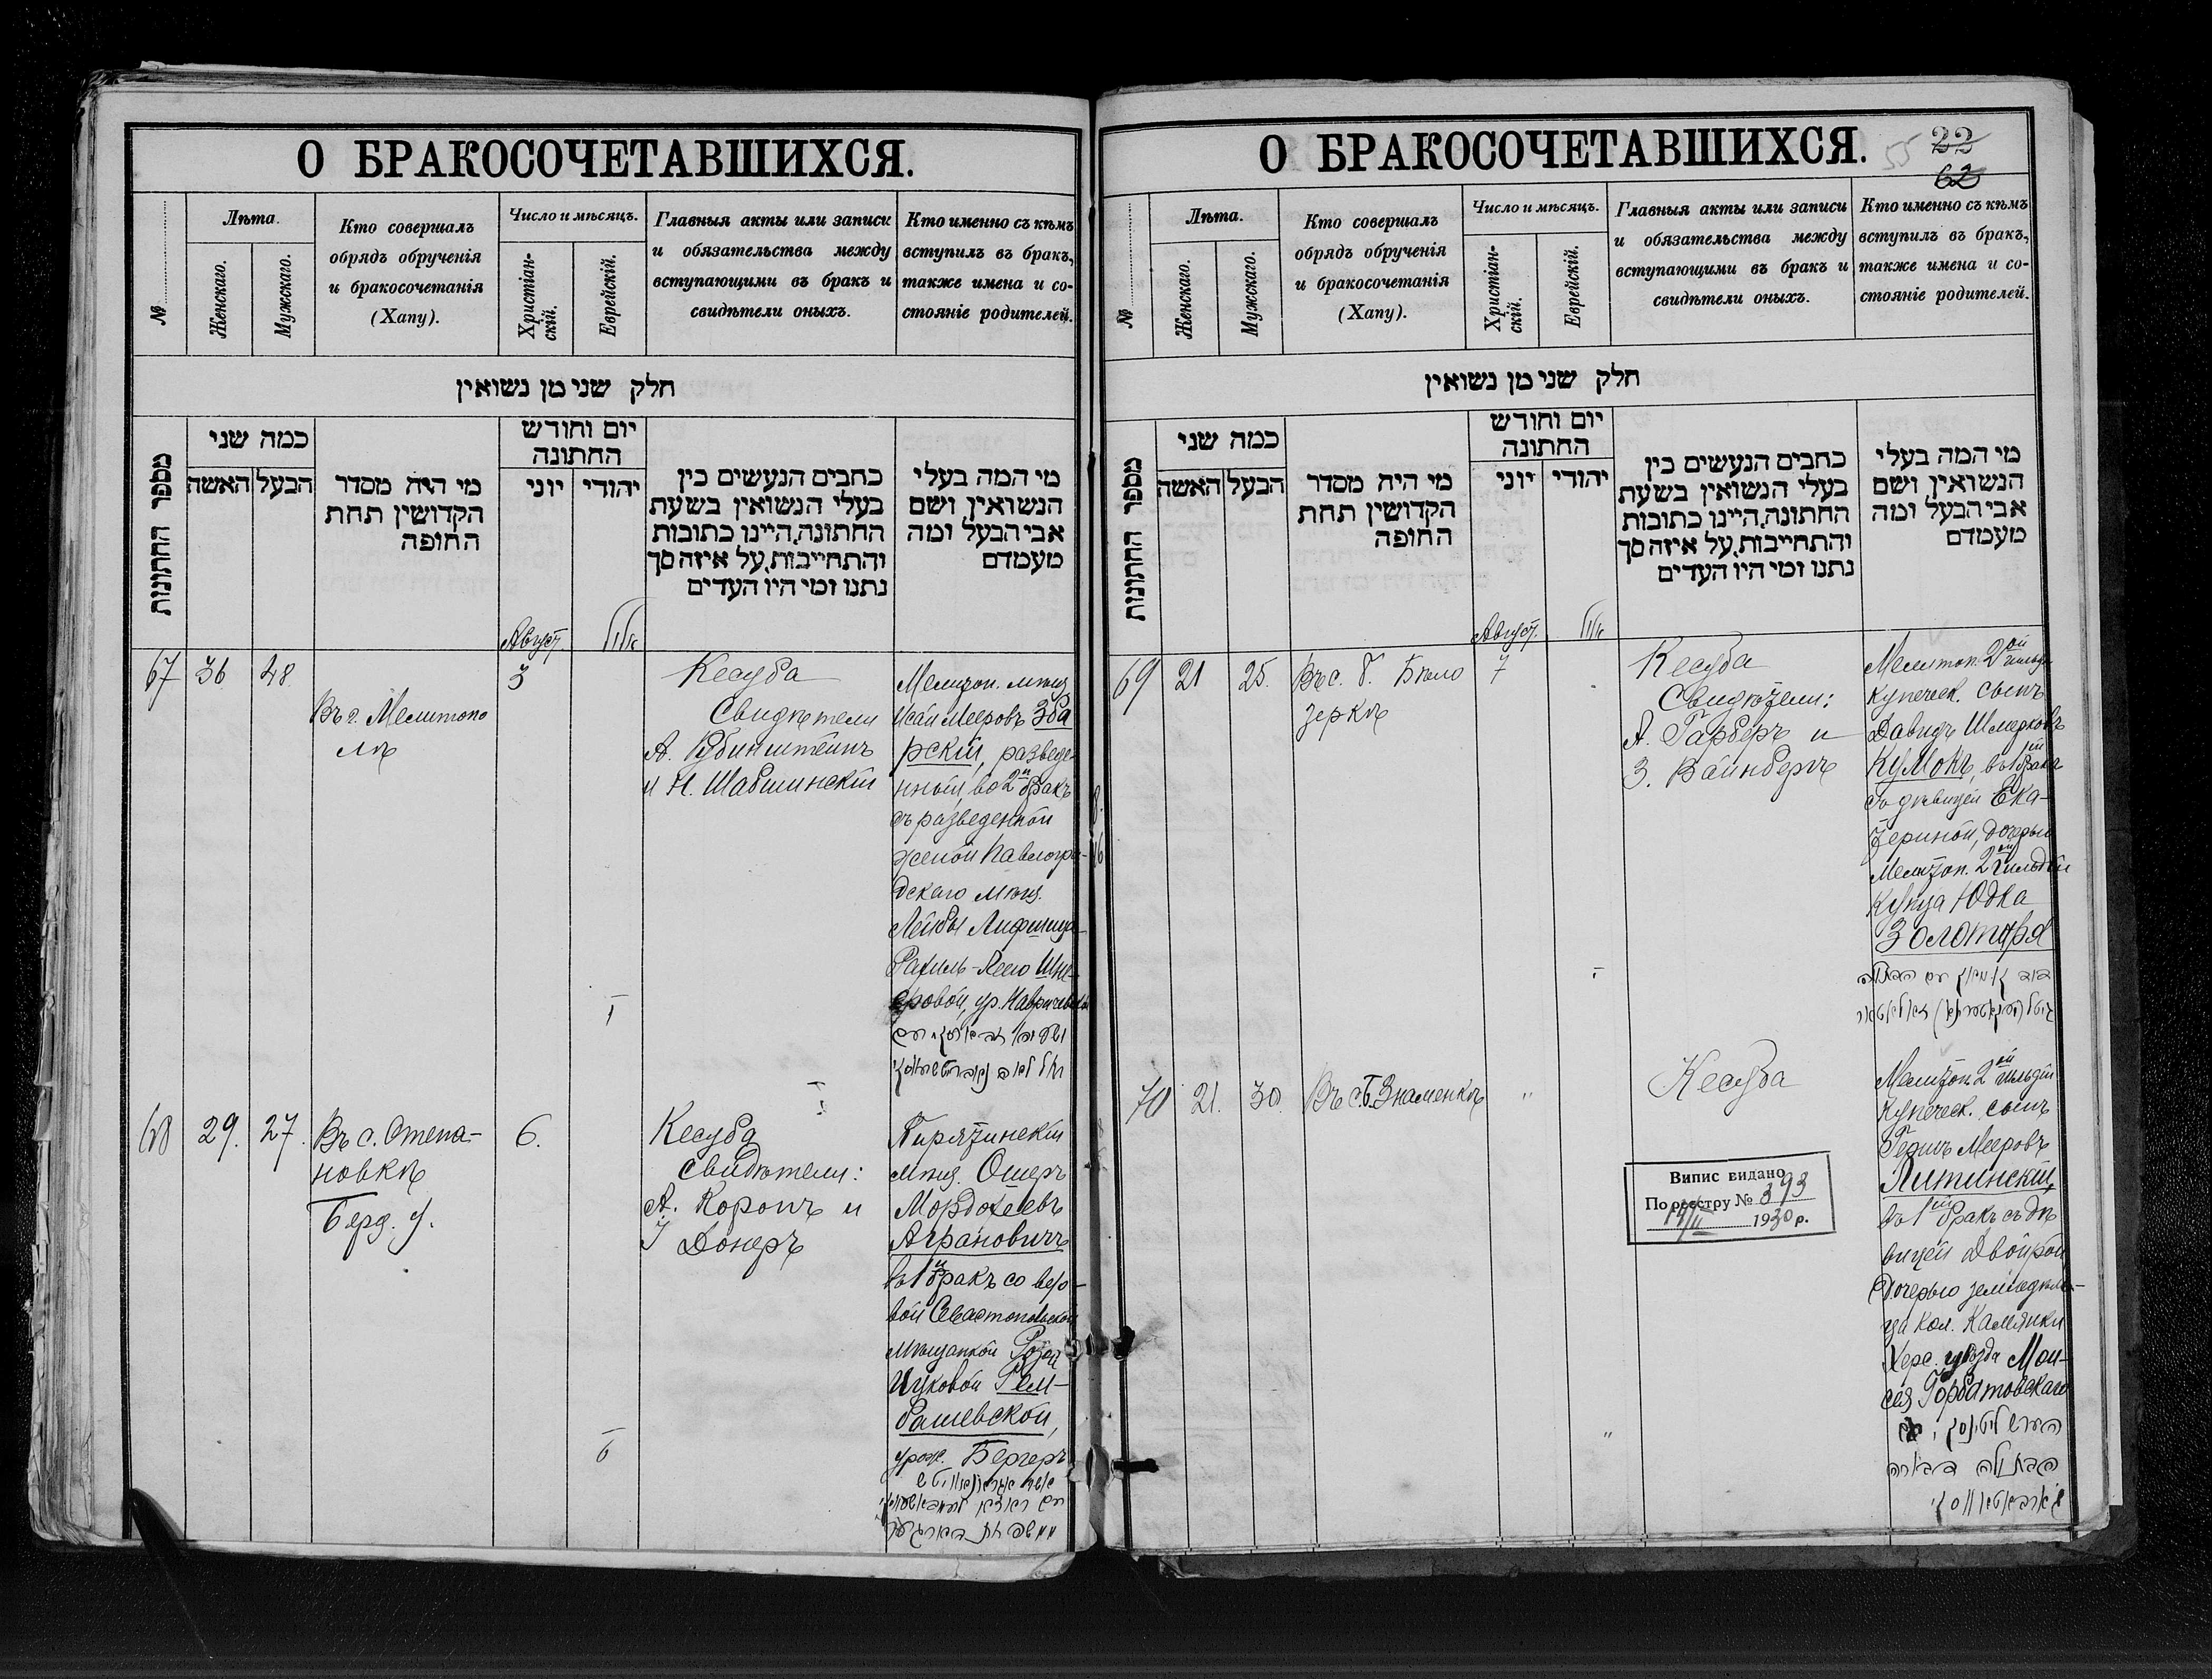 О БРАКОСОЧЕТАВШИХСЯ.
№
Лѣта.
Женскаго.
Мужскаго.
Кто совершалъ
обрядъ обрученія
и бракосочетанія
(Хапу).
Число и мѣсяцъ.
Христіан-
скій.
Еврейскій.
Главныя акты или записи
и обязательства между
вступающими въ бракъ и
свидѣтели оныхъ.
Кто именно съ кѣмъ
вступилъ въ бракъ,
также имена и со-
стояніе родителей.
חלק שני מן נשואין
מספר החתונות
כמה שני
הבעל
האשה
מי היה מסדר
הקדושין תחת
החופה
יום וחודש
החתונה
יהודי
יוני
כתבים הנעשים בין
בעלי הנשואין בשעת
החתונה, היינו כתובות
והתחייבות, על איזה סך
נתנו ומי היו העדים
מי המה בעלי
הנשואין ושם
אבי הבעל ומה
מעמדם
Август.
67
36
48
Въ г. Мелитопо
лѣ
3
Кесуба
Свидѣтели
А. Рубинштейнъ
и Н. Шавшинскій
Мелитоп. мѣщ.
Исай Мееровъ Зба
рскій, разведе-
нный, во 2й бракъ
съ разведенной
женой Павлогра-
дскаго мѣщ.
Лейбы Лифшица
Рахиль-Леею
68
29.
27.
Въ с. Степа-
новкѣ
Берд. у.
6.
Кесуба
свидѣтели:
А. Коропъ и
Донеръ
Пирятинскій
мѣщ. Ошеръ
Мордохеевъ
Аграновичъ
въ 1й бракъ со вдо-
вой Севастопольской
мѣщанкой Розой
Ицковой
башевской,
урож. Бергеръ
О БРАКОСОЧЕТАВШИХСЯ.
55
22
62
№
Лѣта.
Женскаго.
Мужскаго.
Кто совершалъ
обрядъ обрученія
и бракосочетанія
(Хапу).
Число и мѣсяцъ.
Христіан-
скій.
Еврейскій.
Главныя акты или записи
и обязательства между
вступающими въ бракъ и
свидѣтели оныхъ.
Кто именно съ кѣмъ
вступилъ въ бракъ,
также имена и со-
стояніе родителей.
חלק שני מן נשואין
מספר החתונות
כמה שני
הבעל
האשה
מי היה מסדר
הקדושין תחת
החופה
יום וחודש
החתונה
יהודי
יוני
כתבים הנעשים בין
בעלי הנשואין בשעת
החתונה, היינו כתובות
והתחייבות, על איזה סך
נתנו ומי היו העדים
מי המה בעלי
הנשואין ושם
אבי הבעל ומה
מעמדם
Август.
69
21
25.
Въ с. Б. Бѣло
зеркѣ
7
Кесуба
Свидѣтели:
А. Гарберъ и
З. Вайнберъ
Мелитоп. 2ой гильд.
купеческ. сынъ
Давидъ Шмерковъ
Кумокъ, въ 1й бракъ
съ дѣвицей Ека-
териной, дочерью
Мелитоп. 2ой гильдіи
купца Юдка
Золотаря
70
21.
30.
Въ с. Б. Знаменкѣ
"
Кесуба
Мелитоп. 2ой гильдіи
купеческ. сынъ
Гершъ Мееровъ
Литинскій,
въ 1й бракъ съ дѣ
вицей Двойрой
дочерью земледѣль-
ца кол. Камянки
Херс. уѣзда Мои-
сея Горбатовскаго
"
Випис видано
По реєстру № 393
1930 р.